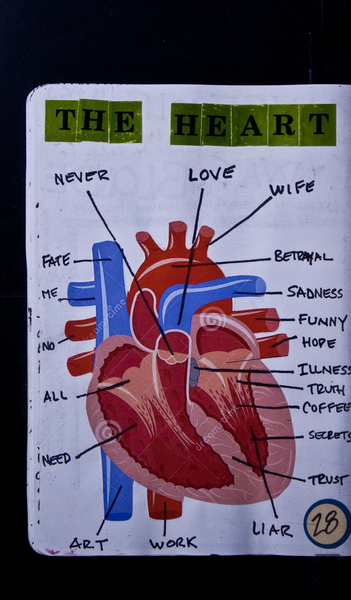 THE HEART
NEVER
LOVE
WIFE
FATE
BETRAYAL
ME
SADNESS
FUNNY
NO
HOPE
ILLNESS
TRUTH
ALL
COFFEE
SECRETS
NEED
TRUST
LIAR
28
ART
WORK